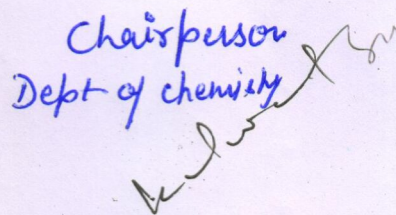 Chairperson
Dept of chemistry